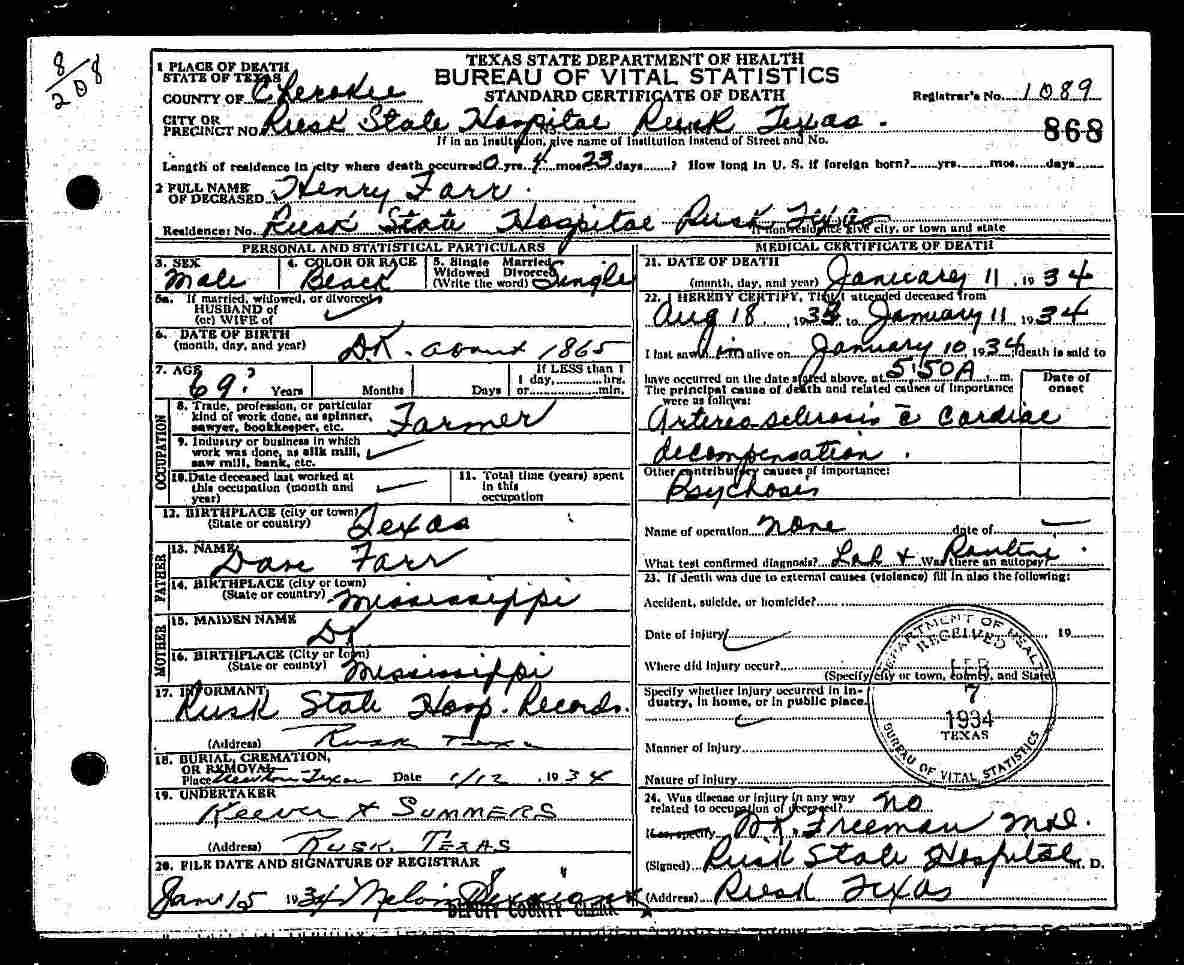 8/208
TEXAS STATE DEPARTMENT OF HEALTH
BUREAU OF VITAL STATISTICS
STANDARD CERTIFICATE OF DEATH
1 PLACE OF DEATH
STATE OF TEXAS
COUNTY OF Cherokee
Registrar's No. 1089
CITY OR
PRECINCT NO. Rusk State Hospital Rusk Texas.
868
If in an Institution, give name of Institution instead of Street and No.
Length of residence in city where death occurred 0 yrs. 4 mos 23 days ? How long in U. S. if foreign born? yrs. mos. days
2 FULL NAME
OF DECEASED Henry Farr.
Residence: No. Rusk State Hospital Rusk Texas
If nonresidence give city, or town and state
PERSONAL AND STATISTICAL PARTICULARS
3. SEX
Male
4. COLOR OR RACE
Black
5. Single Married
Widowed Divorced
(Write the word) Single
5a. If married, widowed, or divorced
HUSBAND of
(or) WIFE of
6. DATE OF BIRTH
(month, day, and year) DK. about 1865
7. AGE
69? Years Months Days
If LESS than 1
1 day, hrs.
or min.
OCCUPATION
8. Trade, profession, or particular
kind of work done, as spinner,
sawyer, bookkeeper, etc. Farmer
9. Industry or business in which
work was done, as silk mill,
saw mill, bank, etc.
10. Date deceased last worked at
this occupation (month and
year)
11. Total time (years) spent
in this
occupation
12. BIRTHPLACE (city or town)
(State or country) Texas
FATHER
13. NAME Dave Farr
14. BIRTHPLACE (city or town)
(State or country) Mississippi
MOTHER
15. MAIDEN NAME
DK
16. BIRTHPLACE (City or town)
(State or county) Mississippi
17. INFORMANT
Rusk State Hosp. Records.
(Address) Rusk Tex
18. BURIAL, CREMATION,
OR REMOVAL
Place Texas Date 1/12, 1934
19. UNDERTAKER
Keever & Summers
(Address) Rusk, Texas
20. FILE DATE AND SIGNATURE OF REGISTRAR
Jan 15 1934
DEPUTY COUNTY CLERK
MEDICAL CERTIFICATE OF DEATH
21. DATE OF DEATH
(month, day, and year) January 11, 1934
22. I HEREBY CERTIFY, That I attended deceased from
Aug 18 1933 to January 11 1934
I last saw him alive on January 10, 1934, death is said to
have occurred on the date stated above, at 5:50A m.
The principal cause of death and related causes of importance
were as follows:
Date of
onset
Arterio sclerosis c̄ Cardiac
decompensation.
Other contributory causes of importance:
Psychosis
Name of operation none date of
What test confirmed diagnosis? Lab & Routine. Was there an autopsy?
23. If death was due to external causes (violence) fill in also the following:
Accident, suicide, or homicide?
Date of injury , 19
Where did injury occur?
(Specify city or town, county, and State)
Specify whether injury occurred in in-
dustry, in home, or in public place.
Manner of injury
Nature of injury
DEPARTMENT OF HEALTH
RECEIVED
FEB
7
1934
TEXAS
BUREAU OF VITAL STATISTICS
24. Was disease or injury in any way
related to occupation of deceased? no
If so, specify W.K. Freeman M.D.
(Signed) Rusk State Hospital M. D.
(Address) Rusk Texas